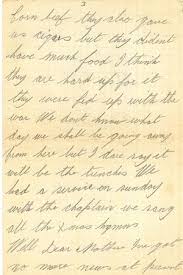 3
Corn beef they also gave
us cigars but they dident
have mush food I think
they are hard up for it
they were fed up with the
war We dont know what
day we shall be going away
from here but I dare say it
will be the trenches We
had a service on sunday
with the chaplain we sang
all the Xmas hymns
Well Dear Mother Ive got
no more news at present